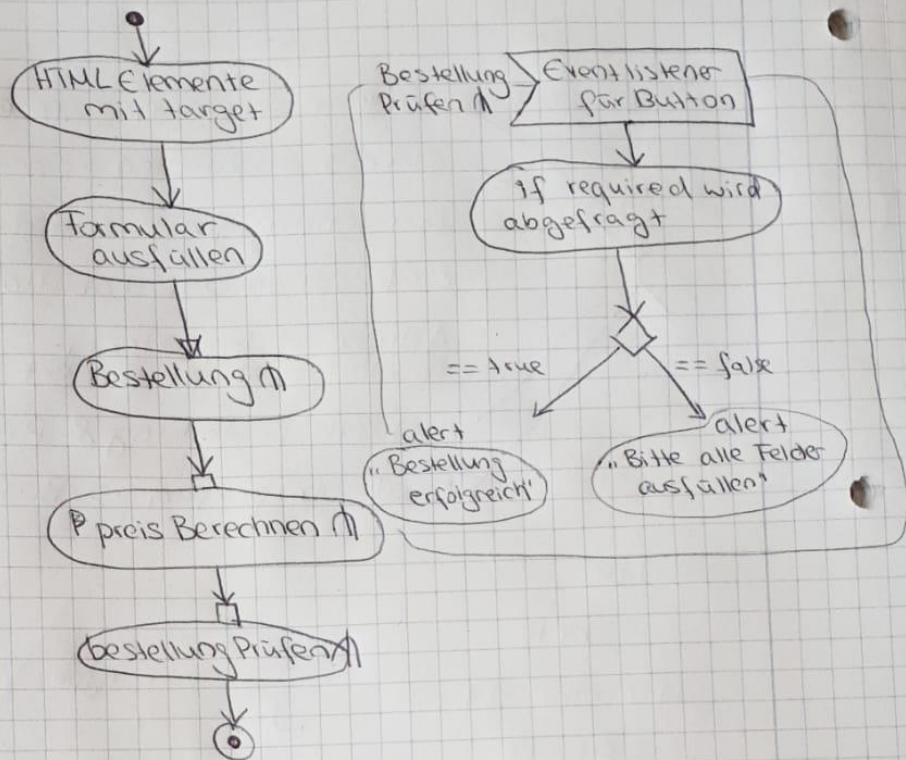 HTML Elemente
mit target
Formular
ausfüllen
Bestellung
preis Berechnen
bestellungPrüfen
Bestellung
Prüfen
Eventlistener
für Button
if required wird
abgefragt
== true
== false
alert
„Bestellung
erfolgreich"
alert
„Bitte alle Felder
ausfüllen"